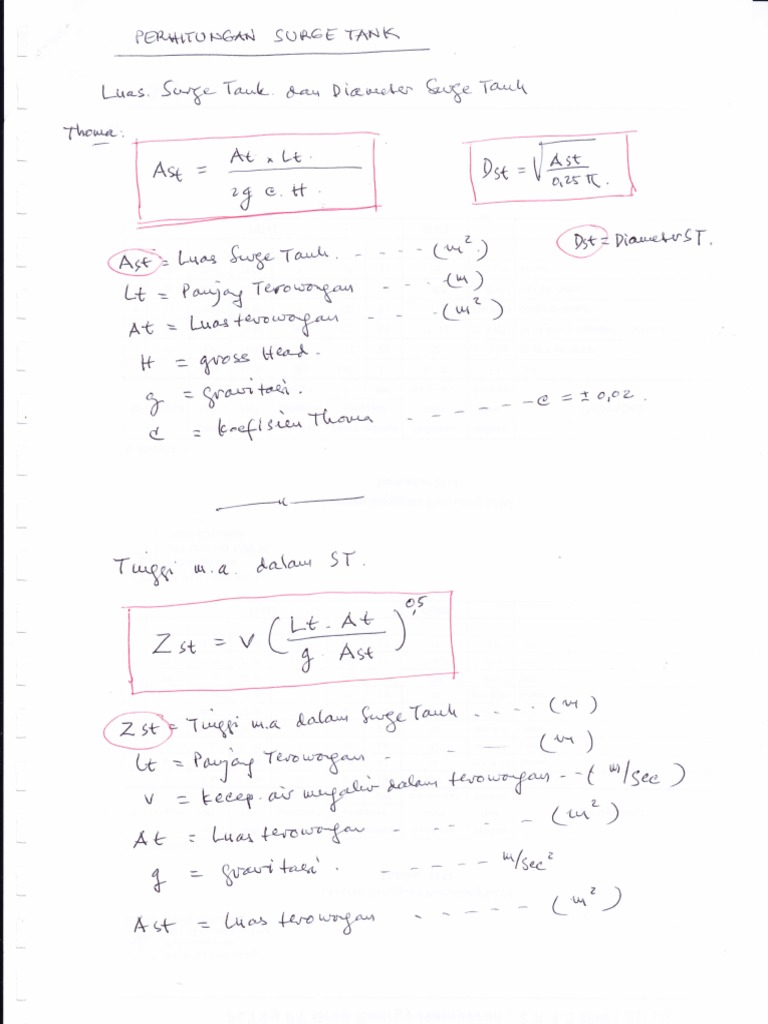 PERHITUNGAN SURGE TANK
Luas. Surge Tank. dan Diameter Surge Tank
Thoma:
Ast = At x Lt. / 2g c. H.
Dst = √ Ast / 0,25 π.
Ast = Luas Surge Tank. - - - - - (m².)
Dst = Diameter ST.
Lt = Panjang Terowongan - - - (m)
At = Luas terowongan - - - - (m²)
H = gross Head.
g = gravitasi.
c = koefisien Thoma - - - - - - - c = ± 0,02.
Tinggi m.a. dalam ST.
Zst = v ( Lt . At / g . Ast )^0,5
Zst = Tinggi m.a dalam Surge Tank - - - - (m)
Lt = Panjang Terowongan - - - (m)
v = kecep. air mengalir dalam terowongan - - ( m/sec )
At = Luas terowongan - - - - - (m²)
g = gravitasi. - - - - - - m/sec²
Ast = Luas terowongan - - - - - - (m²)